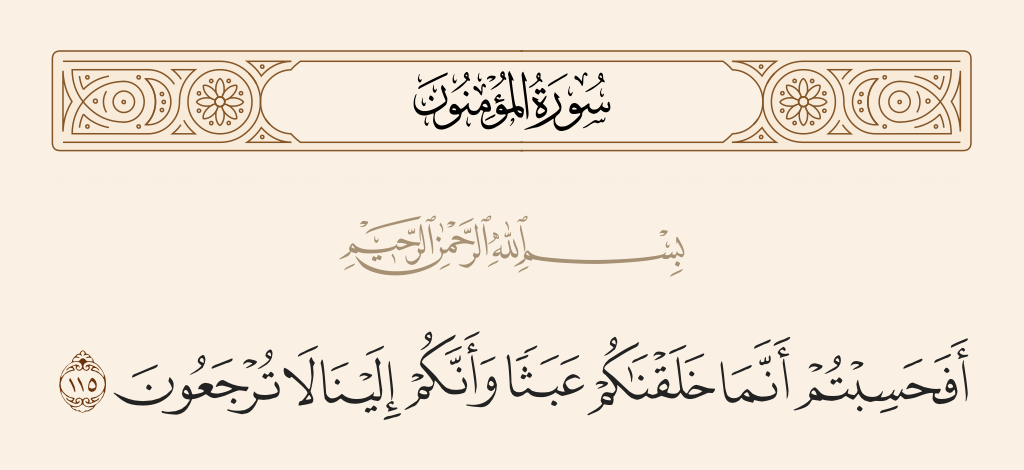 سُورَةُ الْمُؤْمِنُونَ
بِسْمِ ٱللَّهِ ٱلرَّحْمَٰنِ ٱلرَّحِيمِ
أَفَحَسِبْتُمْ أَنَّمَا خَلَقْنَاكُمْ عَبَثًا وَأَنَّكُمْ إِلَيْنَا لَا تُرْجَعُونَ ١١٥